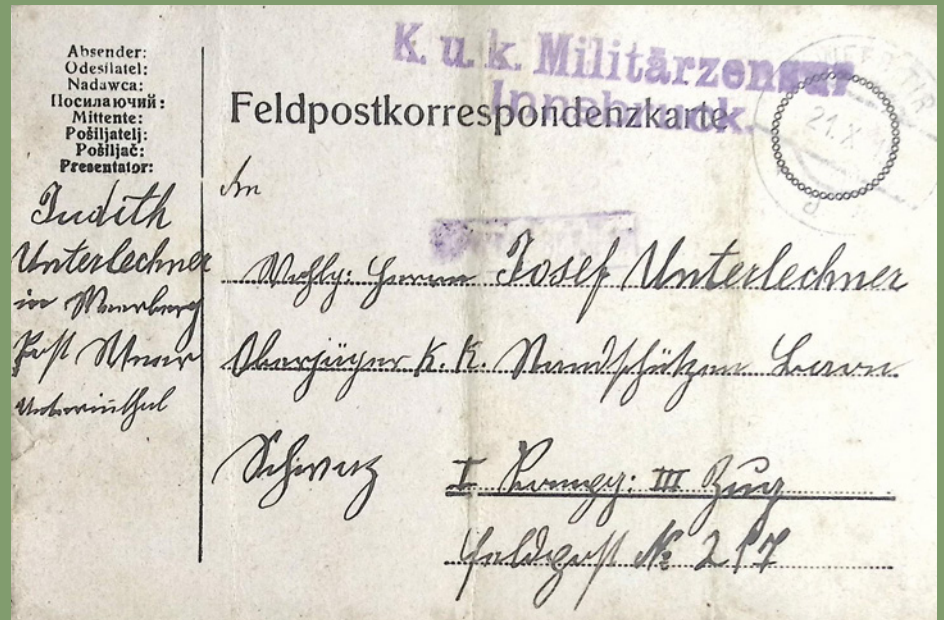 Absender:
Odesílatel:
Nadawca:
Посилаючий:
Mittente:
Pošiljatelj:
Pošiljač:
Presentator:
Judith
Unterlechner
in Weerberg
Post Weer
Unterinthal
K. u. k. Militärzensur
Innsbruck.
Feldpostkorrespondenzkarte
21.X
An
Wohlg: Herrn Josef Unterlechner
Oberjäger K. K. Standschützen Baon
Schwaz
I Kompg: III Zug
Feldpost № 217